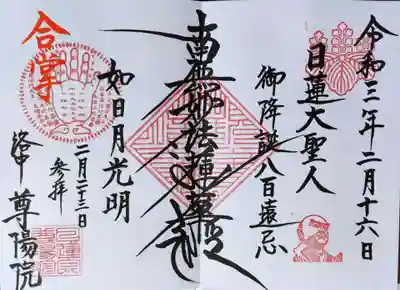 令和三年二月十六日
日蓮大聖人
御降誕八百遠忌
南無妙法蓮華経
如日月光明
合掌
二月二十三日
参拝
洛中 尊陽院